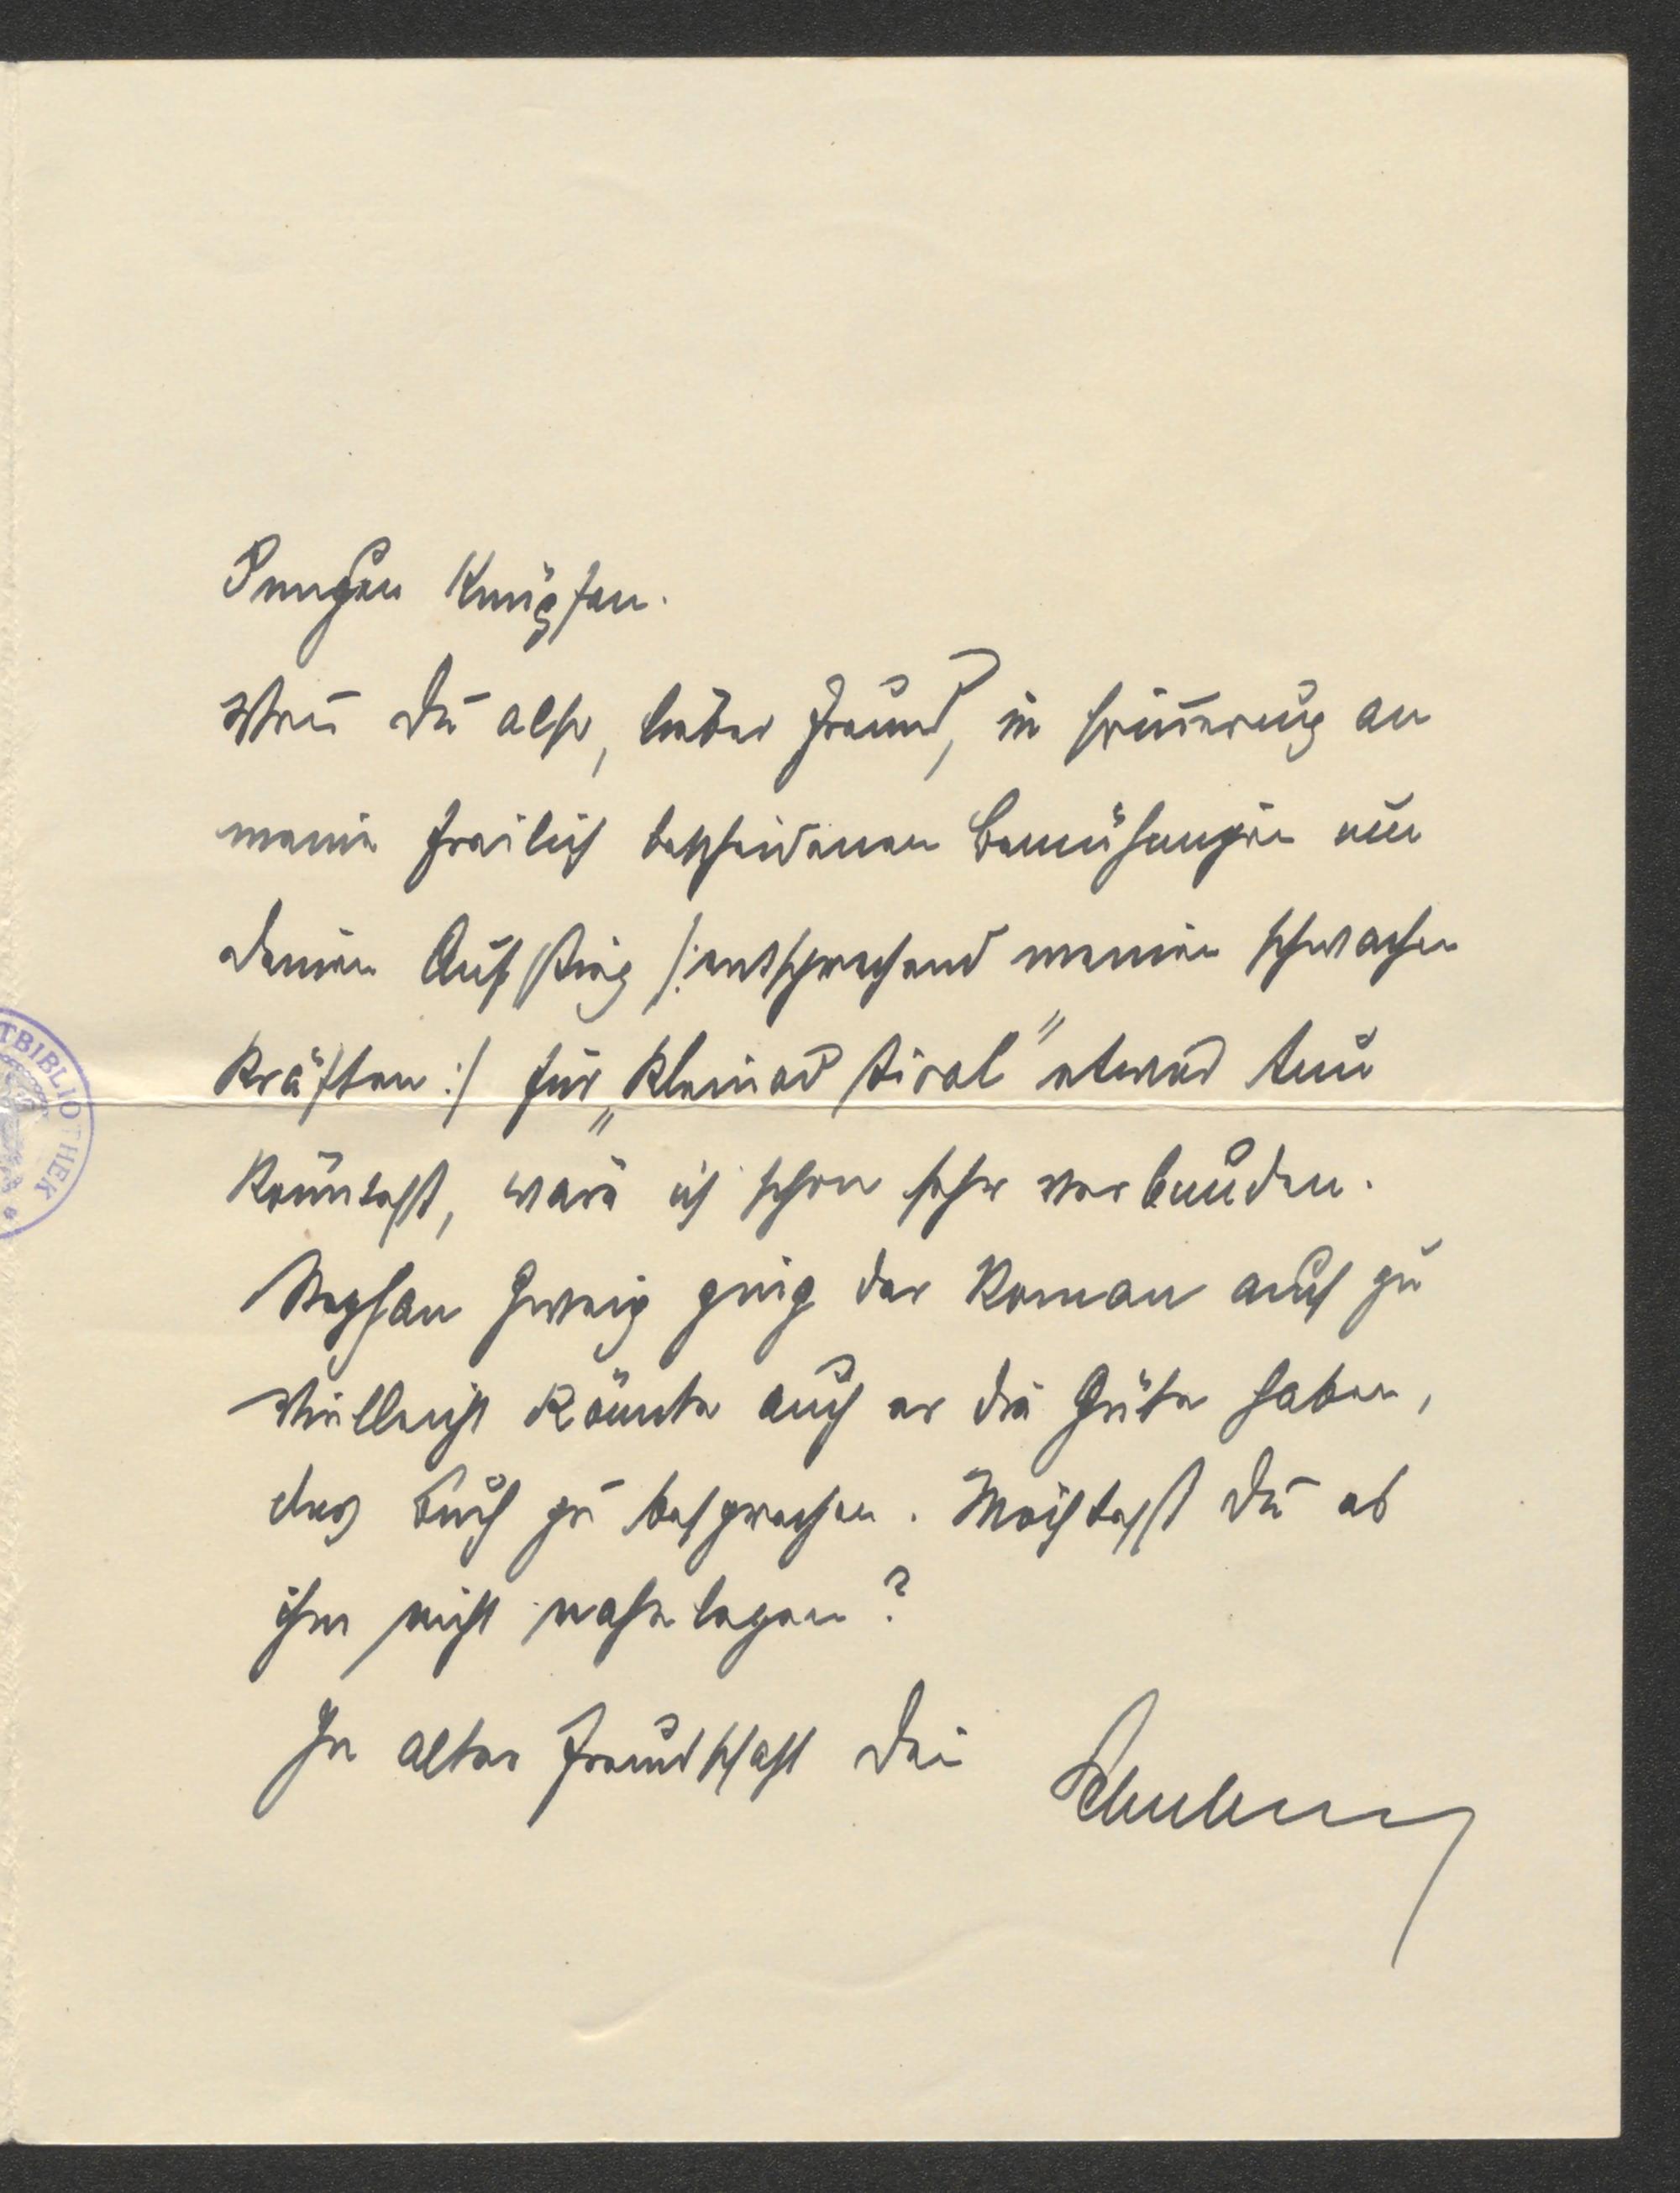 Sorgen knüpfen.
Wenn Du also, lieber Freund, in Erinnerung an
meine freilich bescheidenen Bemühungen um
Deinen Aufstieg /: entsprechend meinen schwachen
Kräften :/ für „Kleinod Tirol" etwas tun
könntest, wäre ich schon sehr verbunden.
Stephan Zweig ging der Roman auch zu
Vielleicht könnte auch er die Güte haben,
das Buch zu besprechen. Möchtest Du es
ihm nicht nahelegen?
In alter Freundschaft Dein
TBIBLIOTHEK